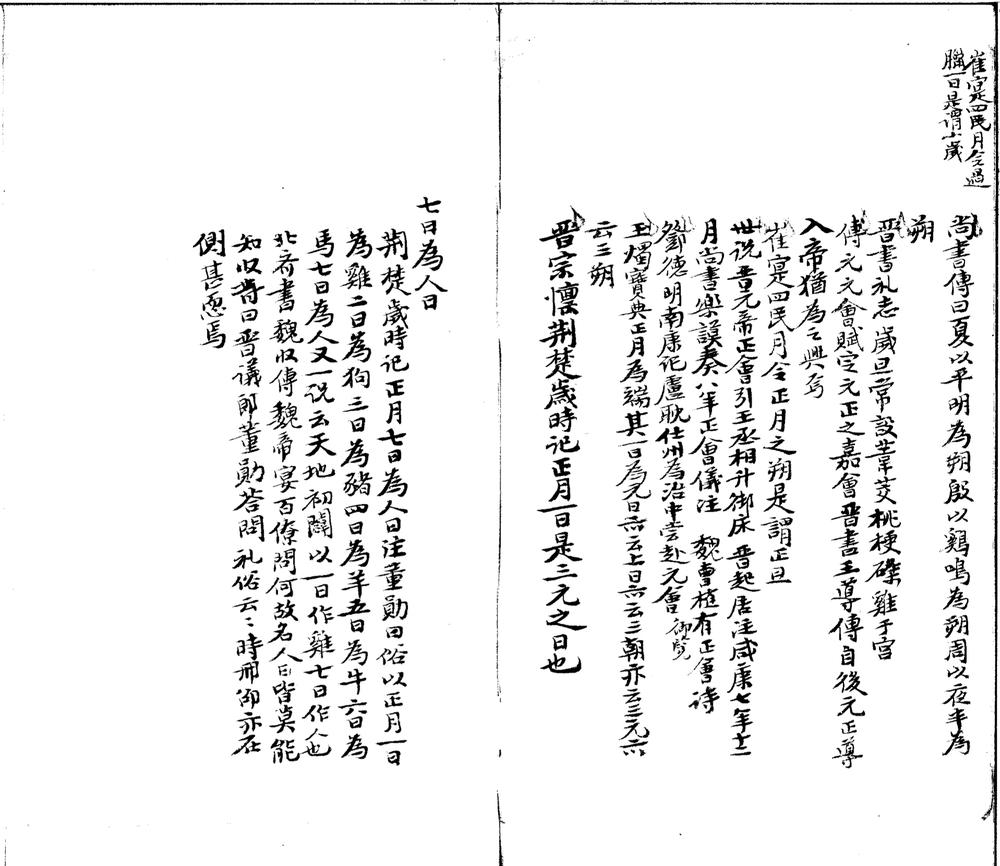 崔寔四民月令過
臘一日是謂小歲
尚書傳曰夏以平明為朔殷以鷄鳴為朔周以夜半為
朔
晋書礼志歲旦常設葦茭桃梗磔雞于宫
傅元元會賦定元正之嘉會晋書王導傳自後元正導
入帝猶為之興焉
崔寔四民月令正月之朔是謂正旦
世说晋元帝正會引王丞相升御床 晋起居注咸康七年十二
月尚書樂謨奏八年正會儀注 魏曹植有正會诗
鄧德明南康记盧耽仕州為治中尝赴元會御覧
玉燭寶典正月為端其一日為元日亦云上日亦云三朝亦云三元亦
云三朔
晋宗懍荆楚歳時记正月一日是三元之日也
七日為人日
荆楚歲時记正月七日為人日注董勛曰俗以正月一日
為雞二日為狗三日為豬四日為羊五日為牛六日為
馬七日為人又一说云天地初闢以一日作雞七日作人也
北齐書魏收傳魏帝宴百僚問何故名人日皆莫能
知收對曰晋議郎董勛荅問礼俗云〻時邢卲亦在
側甚恧焉